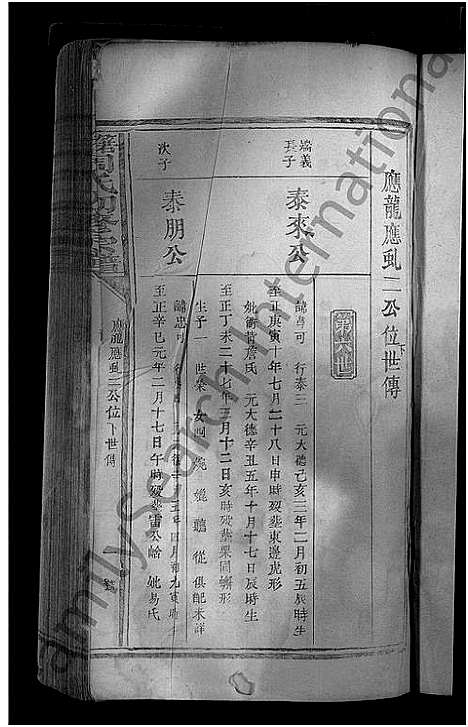 應龍應虬二公位下世傳
第六世
端義長子
泰來公
諱喜可 行泰三 元大德己亥三年二月初五辰時生
至正庚寅十年七月二十八日申時歿葬東邊虎形
妣衡 詹氏 元大德辛丑五年十月十七日辰時生
至正丁未二十七年三月十二日亥時歿葬栗園 形
生子一 世榮 女四 婉 媲 聽 從 俱配未詳
次子
泰朋公
諱忠可 行 德 十 年四月初九寅時
至正辛巳元年二月十七日午時歿葬雷公 妣易氏
周氏初修宗譜
應龍應虬二公位下世傳
FamilySearch International